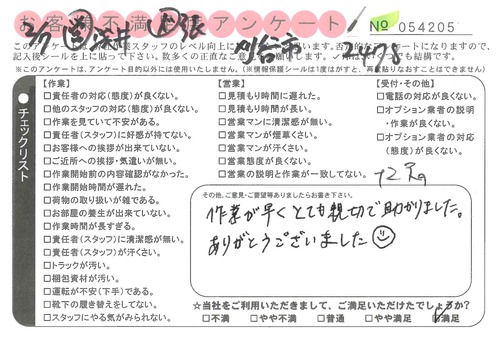 お客様不満足アンケート No 054205
刈谷市 2478
記入後シールを上に貼って下さい。
※このアンケートは、アンケート目的以外には使用いたしません。(※情報保護シールは1度はがすと、再度貼りなおすことはできません)
チェックリスト
【作業】
□責任者の対応(態度)が良くない。
□他のスタッフの対応(態度)が良くない。
□作業を見ていて不安がある。
□責任者(スタッフ)に好感が持てない。
□お客様への挨拶が出来ていない。
□ご近所への挨拶・気遣いが無い。
□作業開始前の内容確認がなかった。
□作業開始時間が遅れた。
□荷物の取り扱いが雑である。
□お部屋の養生が出来ていない。
□作業時間が長すぎる。
□責任者(スタッフ)に清潔感が無い。
□責任者(スタッフ)が汗くさい。
□トラックが汚い。
□梱包資材が汚い。
□運転が不安(下手)である。
□靴下の履き替えをしてない。
□スタッフにやる気がみられない。
【営業】
□見積もり時間に遅れた。
□見積もり時間が長い。
□営業マンに清潔感が無い。
□営業マンが煙草くさい。
□営業マンが汗くさい。
□営業態度が良くない。
□営業の説明と作業が一致してない。
【受付・その他】
□電話の対応が良くない。
□オプション業者の説明
・作業が良くない。
□オプション業者の対応
(態度)が良くない。
その他、ご意見・ご要望等ありましたらお書き下さい。
作業が早くとても親切で助かりました。
ありがとうございました
☆当社をご利用いただきまして、ご満足いただけたでしょうか?
□不満 □やや不満 □普通 □やや満足 ☑満足